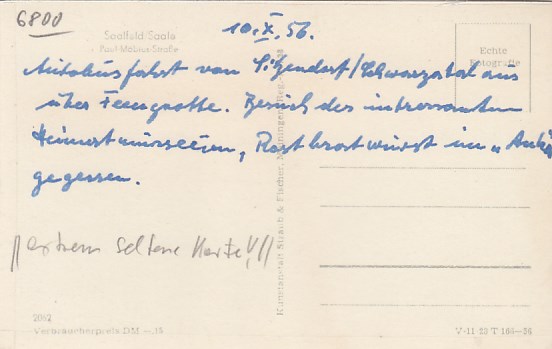 6800
Saalfeld/Saale
Paul-Möbius-Straße
10.X.56.
Echte
Fotografie
Autobusfahrt von Sitzendorf/Schwarzatal aus
über Feengrotte. Besuch des interessanten
Heimatmuseums, Rostbratwürst im „Anker
gegessen.
Kunstanstalt Straub & Fischer, Meiningen
//extrem seltene Karte!//
2082
Verbraucherpreis DM –.15
V-11 22 T